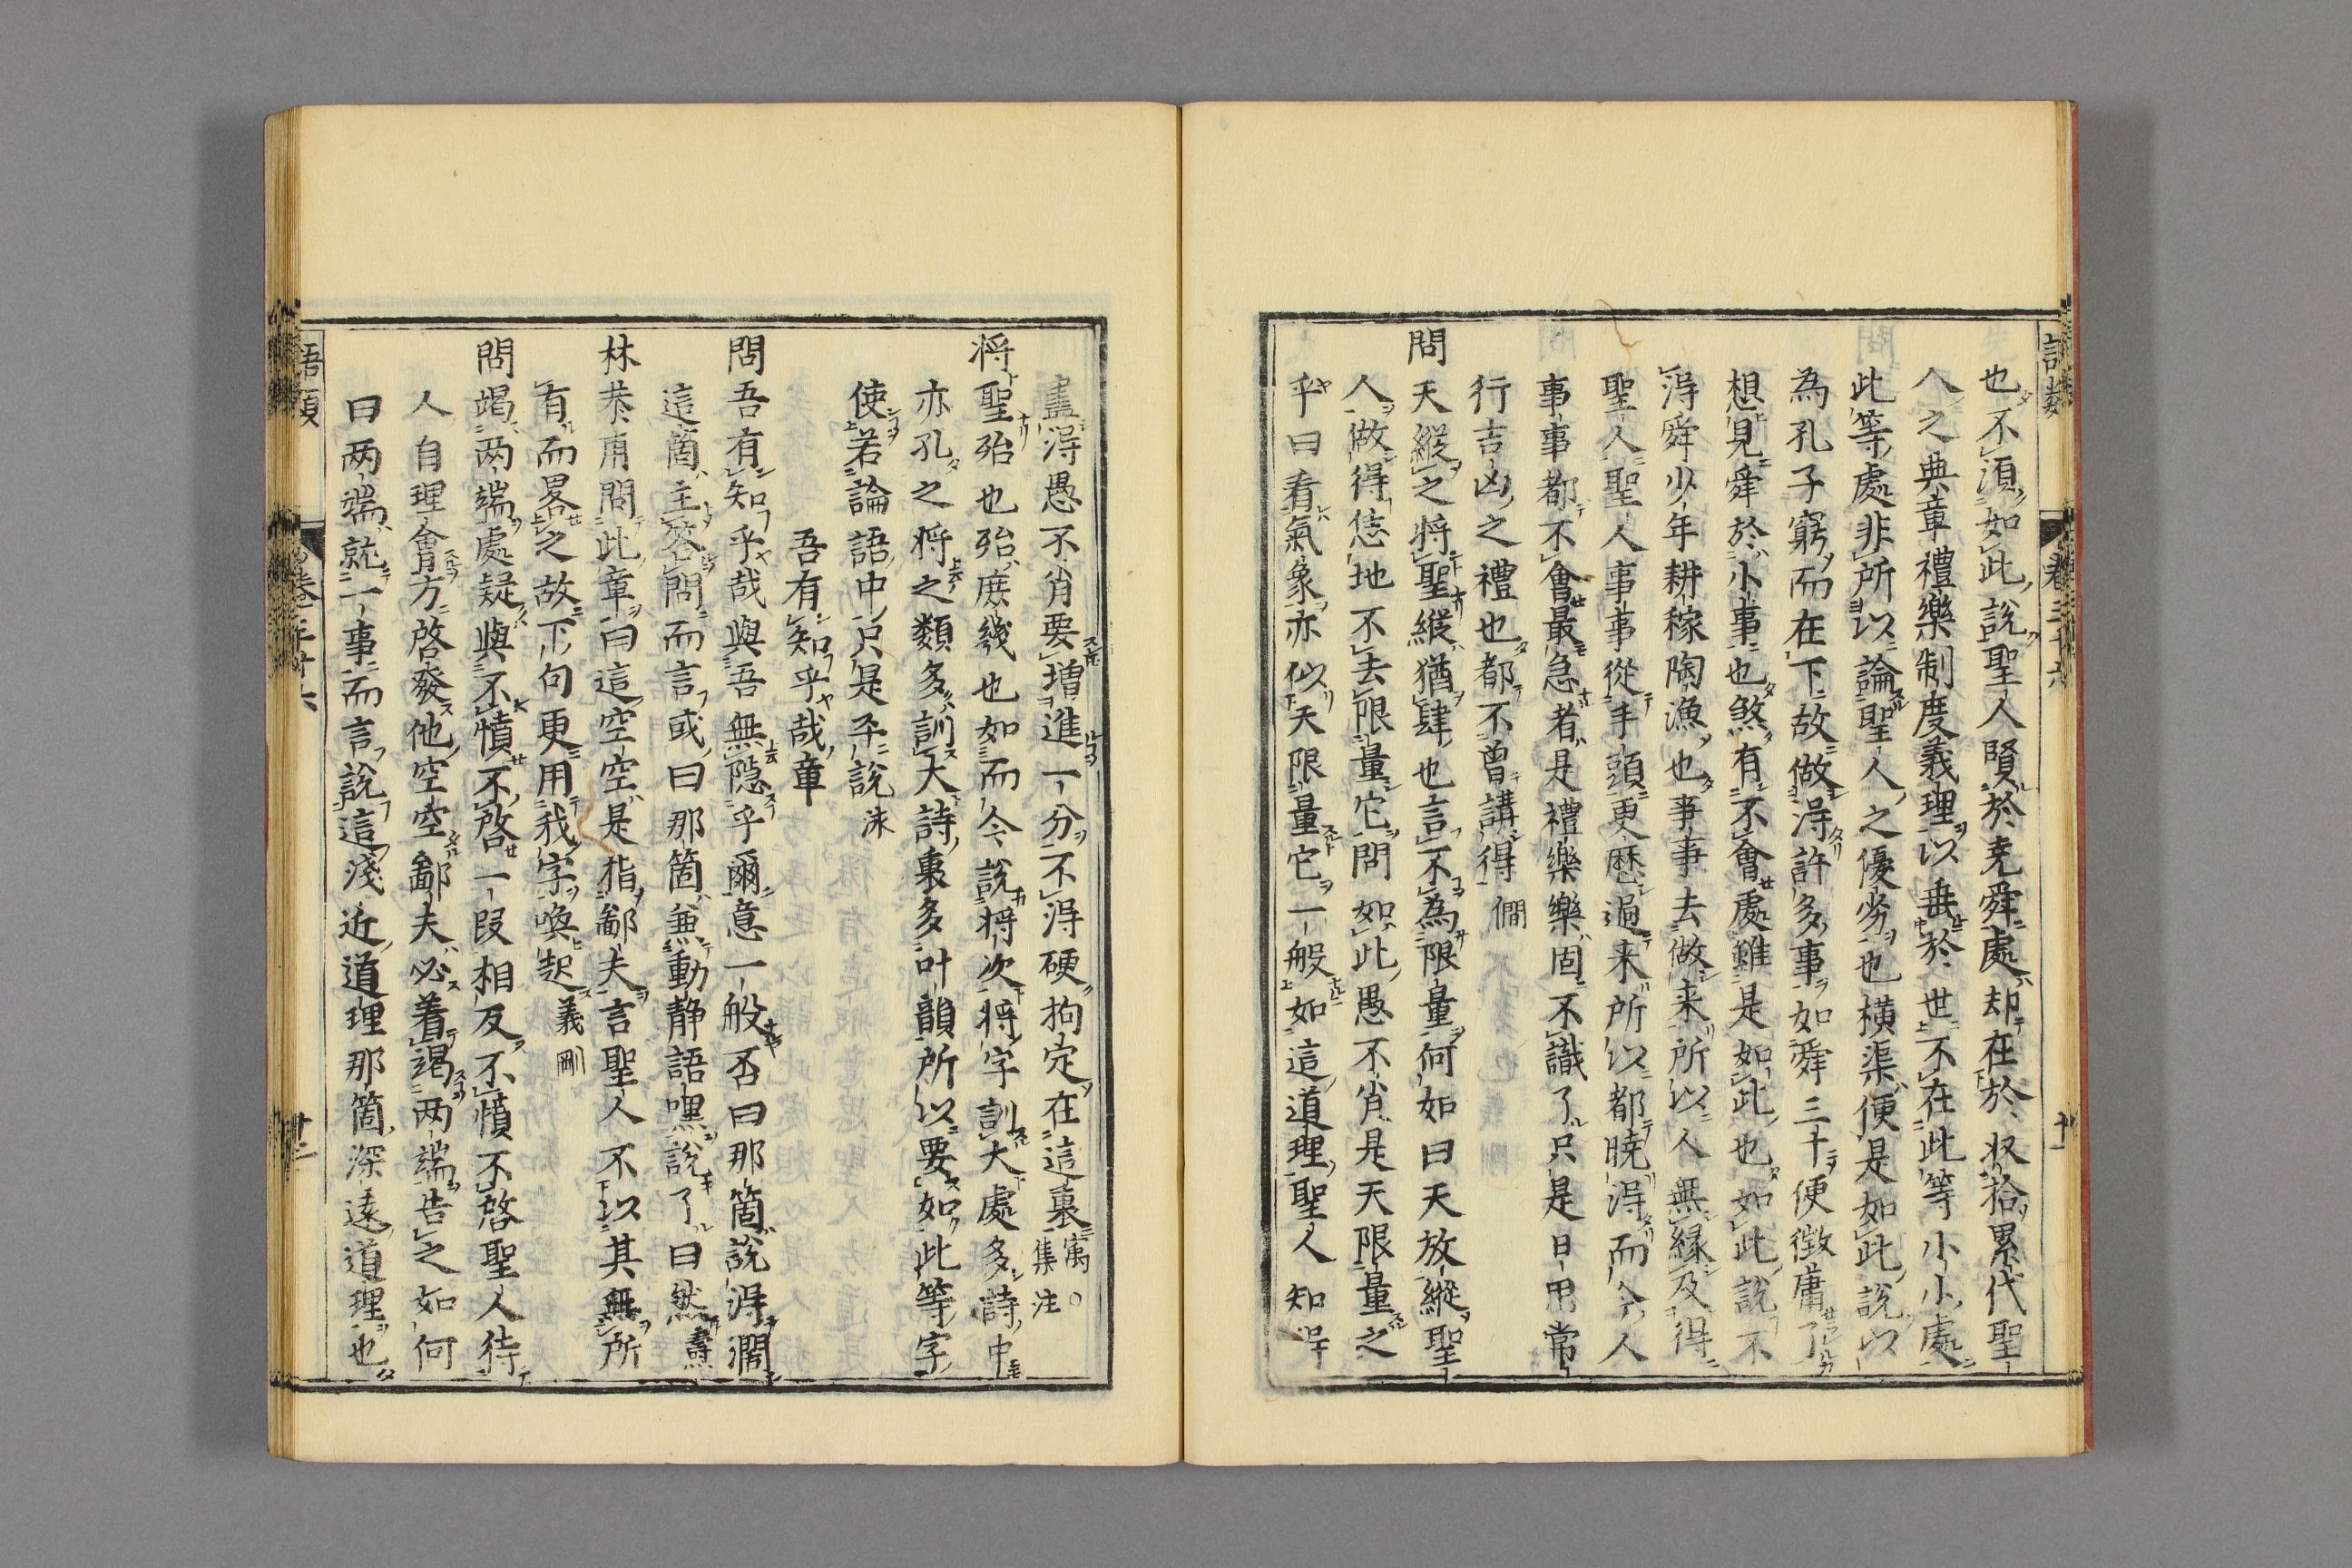 語類 卷三十六 十一
也不須如此說聖人賢於堯舜處却在於収拾累代聖
人之典章禮樂制度義理以垂於世不在此等小小處
此等處非所以論聖人之優劣也橫渠便是如此說以
為孔子窮而在下故做淂許多事如舜三十便徵庸了
想見舜於小事也煞有不會處雖是如此也如此說不
淂舜少年耕稼陶漁也事事去做来所以人無緣及得
聖人聖人事事從手頭更歷過来所以都曉淂而今人
事事都不會最急者是禮樂樂固不識了只是日用常
行吉凶之禮也都不曾講得 僩
問天縱之将聖縱猶肆也言不為限量何如曰天放縱聖
人做得恁地不去限量它問如此愚不肖是天限量之
乎曰看氣象亦似天限量它一般如這道理聖人知得
盡淂愚不肖要增進一分不淂硬拘定在這裏 㝢○集注
将聖殆也殆庶幾也如而今說将次将字訓大處多詩中
亦孔之将之類多訓大詩裏多叶韻所以要如此等字
使若論語中只是平說 泳
吾有知乎哉章
問吾有知乎哉與吾無隠乎爾意一般否曰那箇說淂濶
這箇主荅問而言或曰那箇兼動静語嘿說了曰然 燾
林恭甫問此章曰這空空是指鄙夫言聖人不以其無所
有而畧之故下句更用我字喚起 義剛
問竭两端處疑與不憤不啓一叚相反不憤不啓聖人待
人自理會方啓發他空空鄙夫必着竭两端告之如何
曰两端就一事而言說這淺近道理那箇深遠道理也
語類 卷三十六 十二